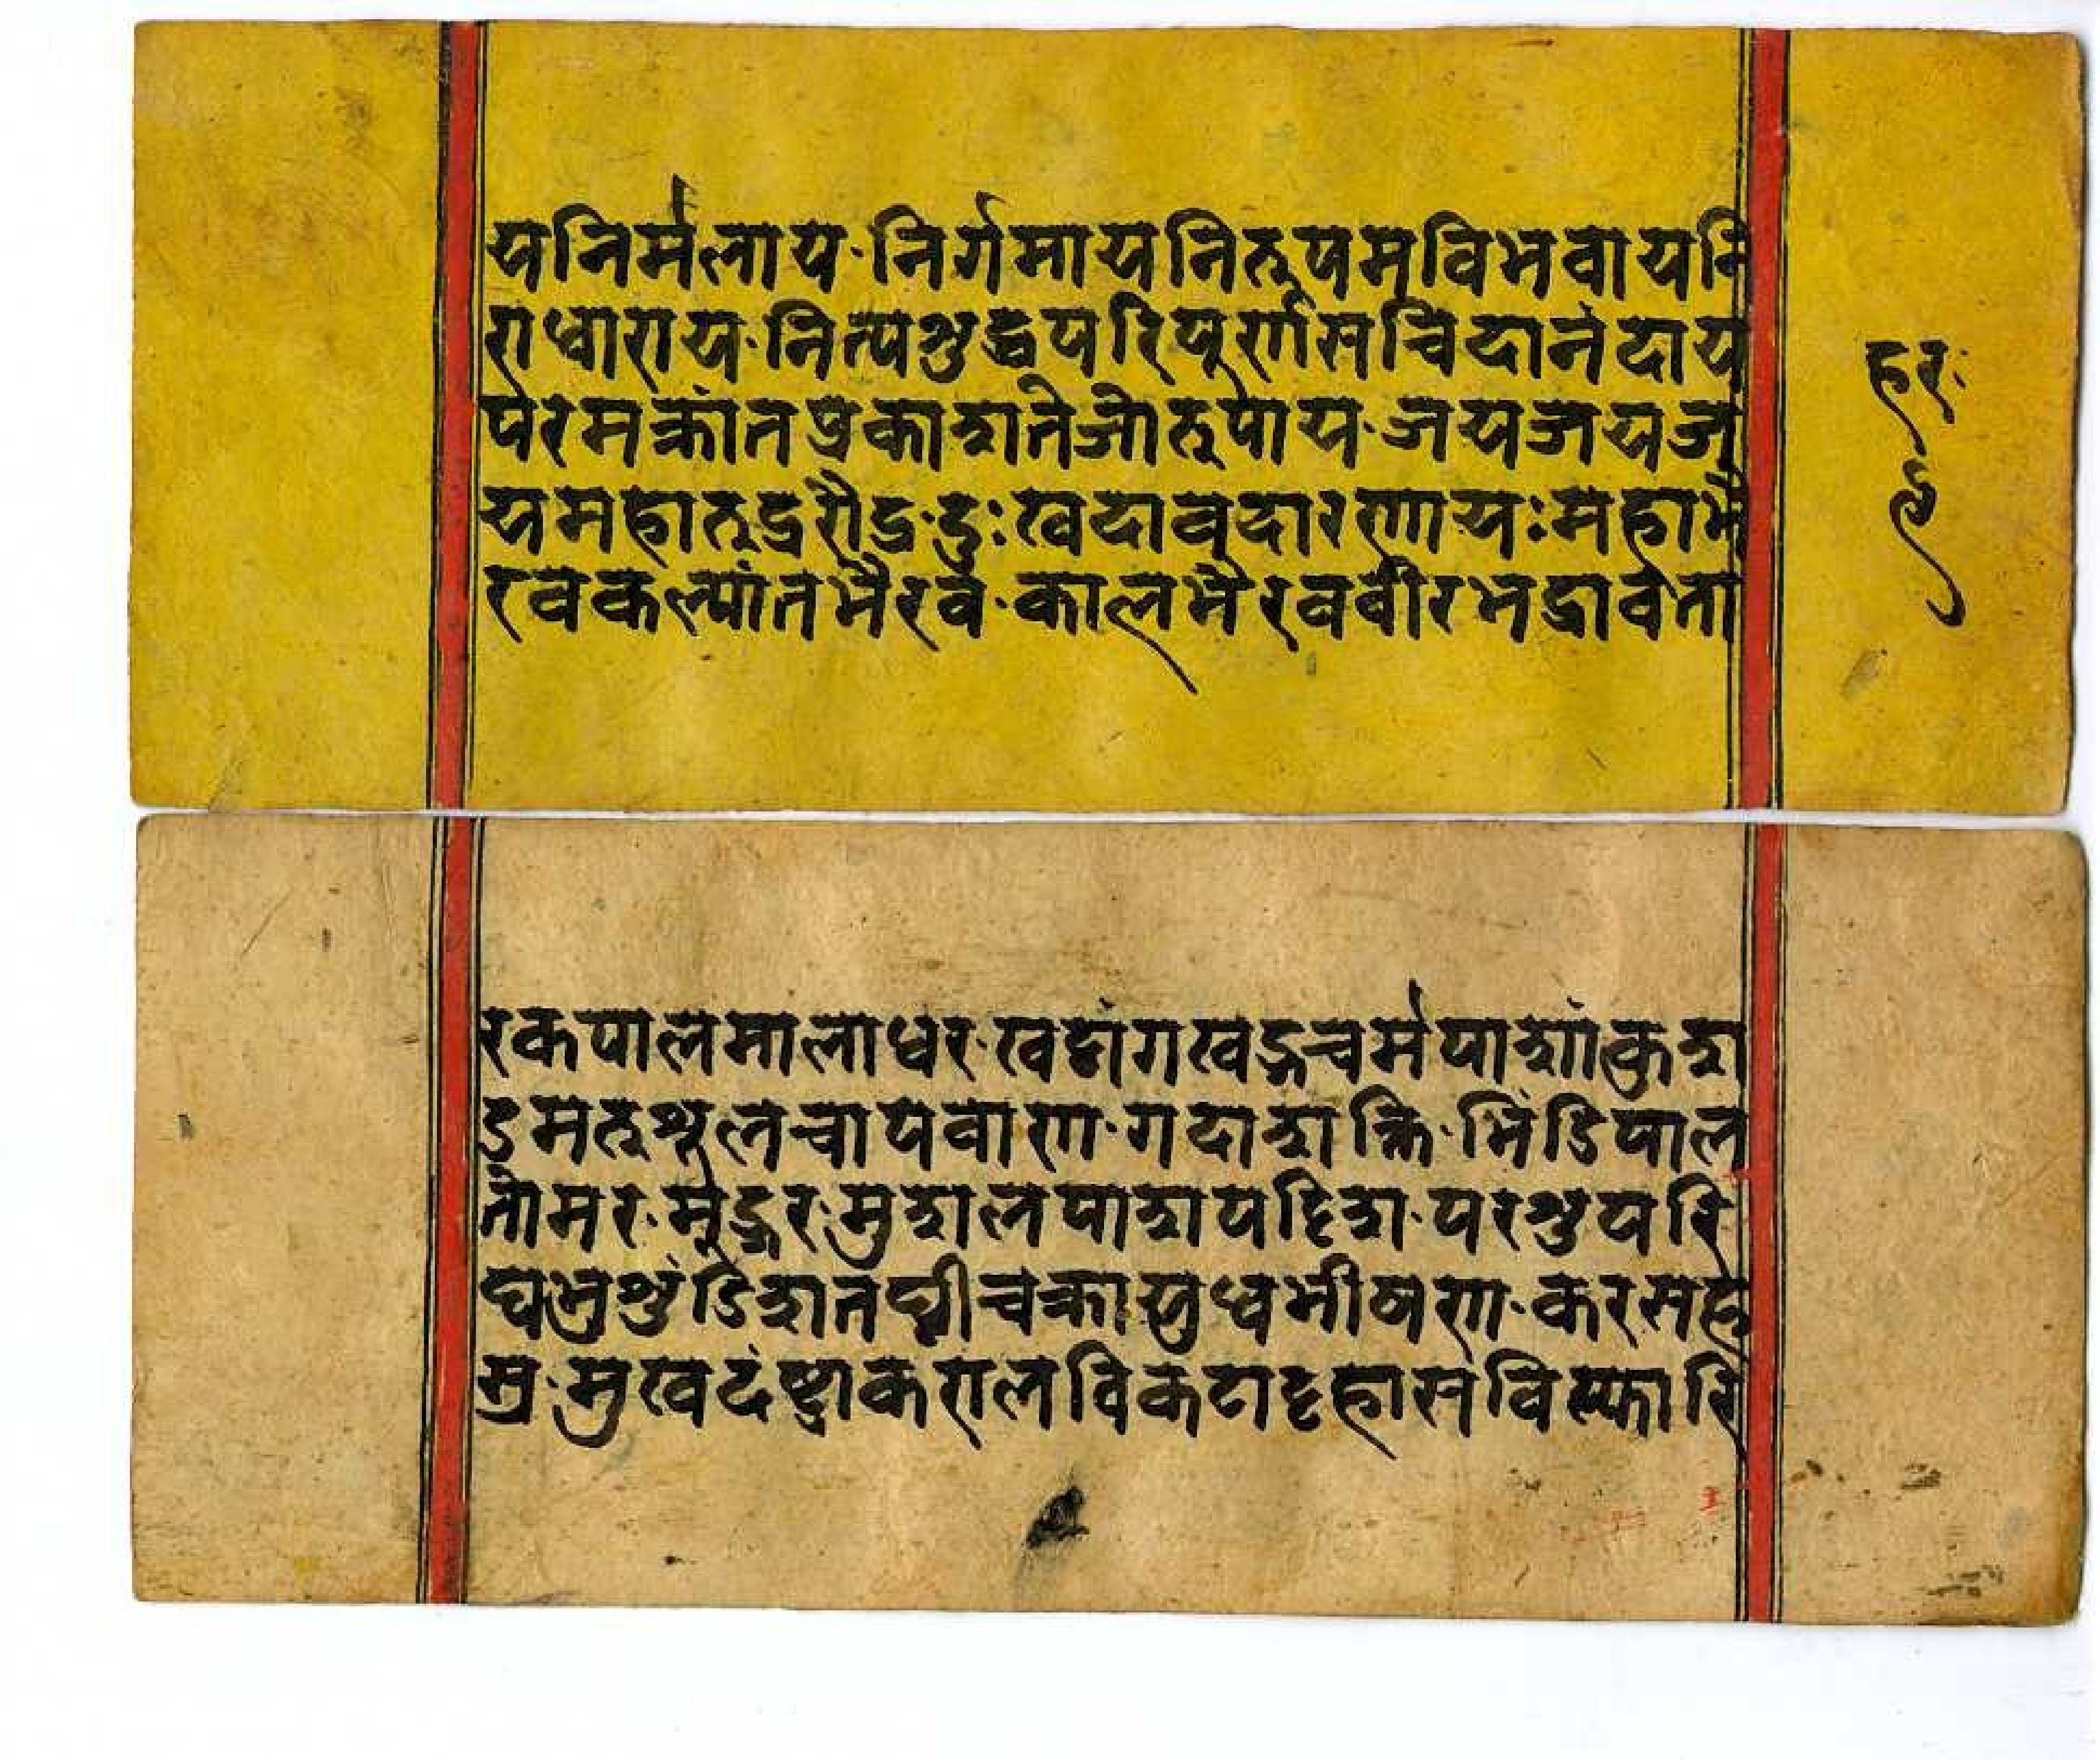 यनिर्मलाय·निर्गमायनिरूपमविभवायनि
राधाराय·नित्यशुद्धपरिपूर्णसचिदानंदाय
परमक्रांतप्रकाशतेजोरूपाय·जयजयज
यमहारुद्ररौद्र·दुःखदावदारणायःमहाभै
रवकल्पांतभैरव·कालभैरववीरभद्रावता
हरः
रकपालमालाधर·खट्वांगखड्गचर्मपाशांकुश
डमरुशूलचापबाण·गदाशक्ति·भिंडिपाल
तोमर·मुद्गर·मुशलपाशपट्टिश·परशुपरि
घभुशुंडिशतघ्नीचक्रायुधभीषण·करसह
स्र·मुखदंष्ट्राकरालविकटाट्टहासविस्फारि